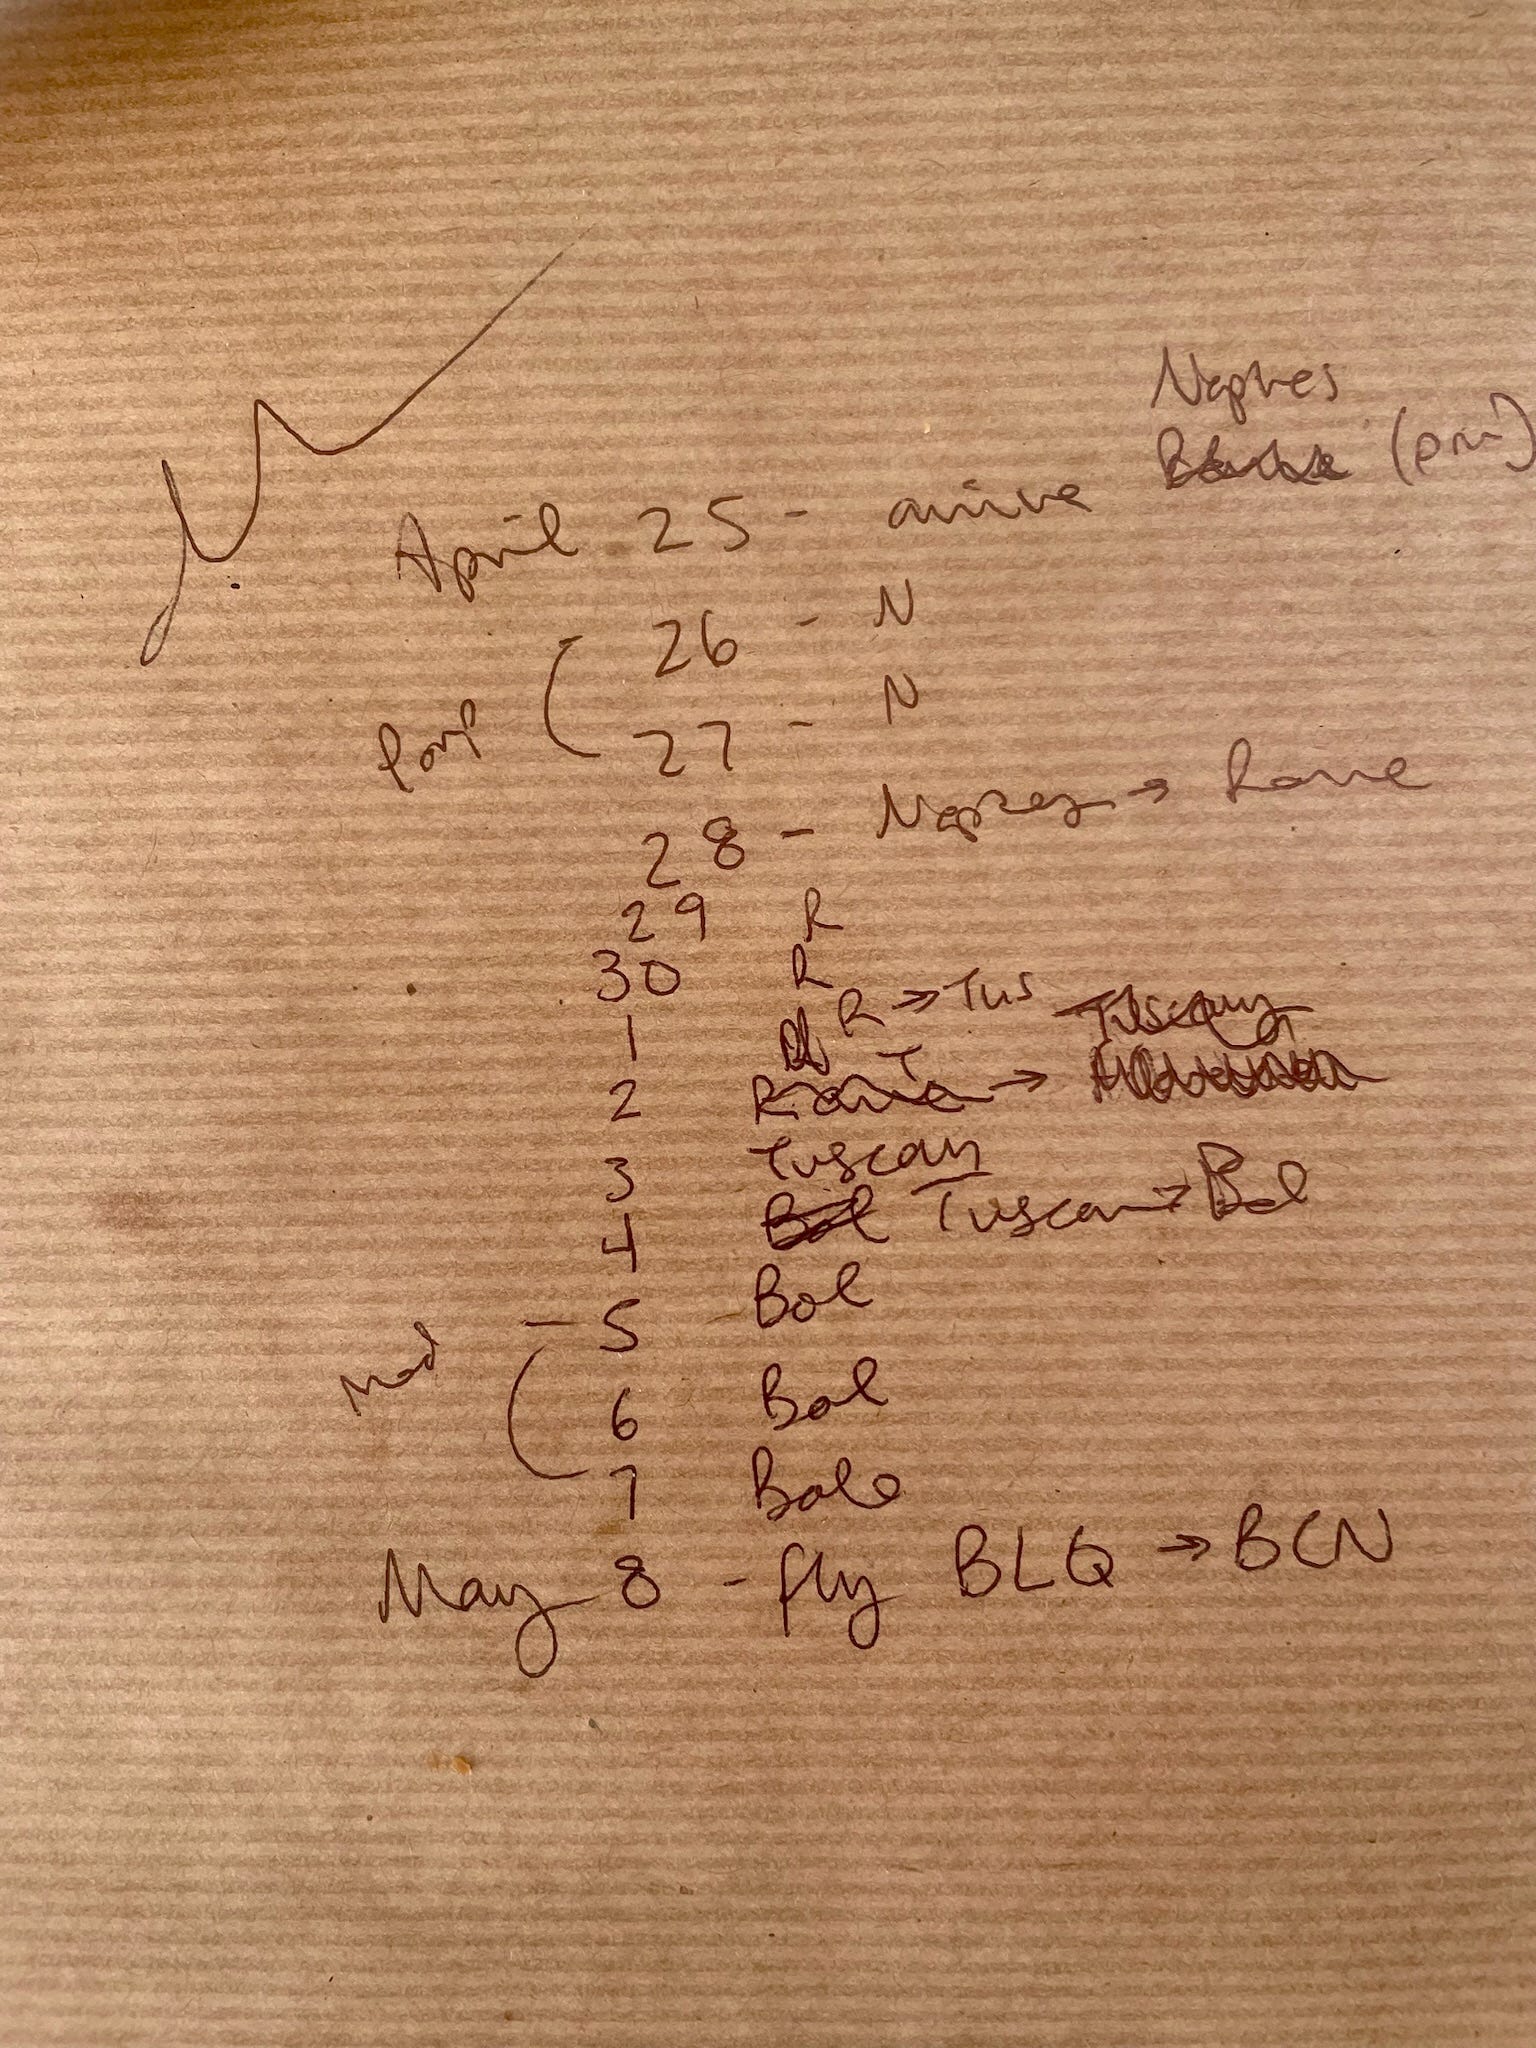 Naples
April 25 - arrive (pm)
26 - N
27 - N
Pomp
28 - Naples → Rome
29 R
30 R
1 R → Tus Tuscany
2 Rome T →
3 Tuscany
4 Bol Tuscan → Bol
5 Bol
Mod
6 Bol
7 Bolo
May 8 - fly BLQ → BCN